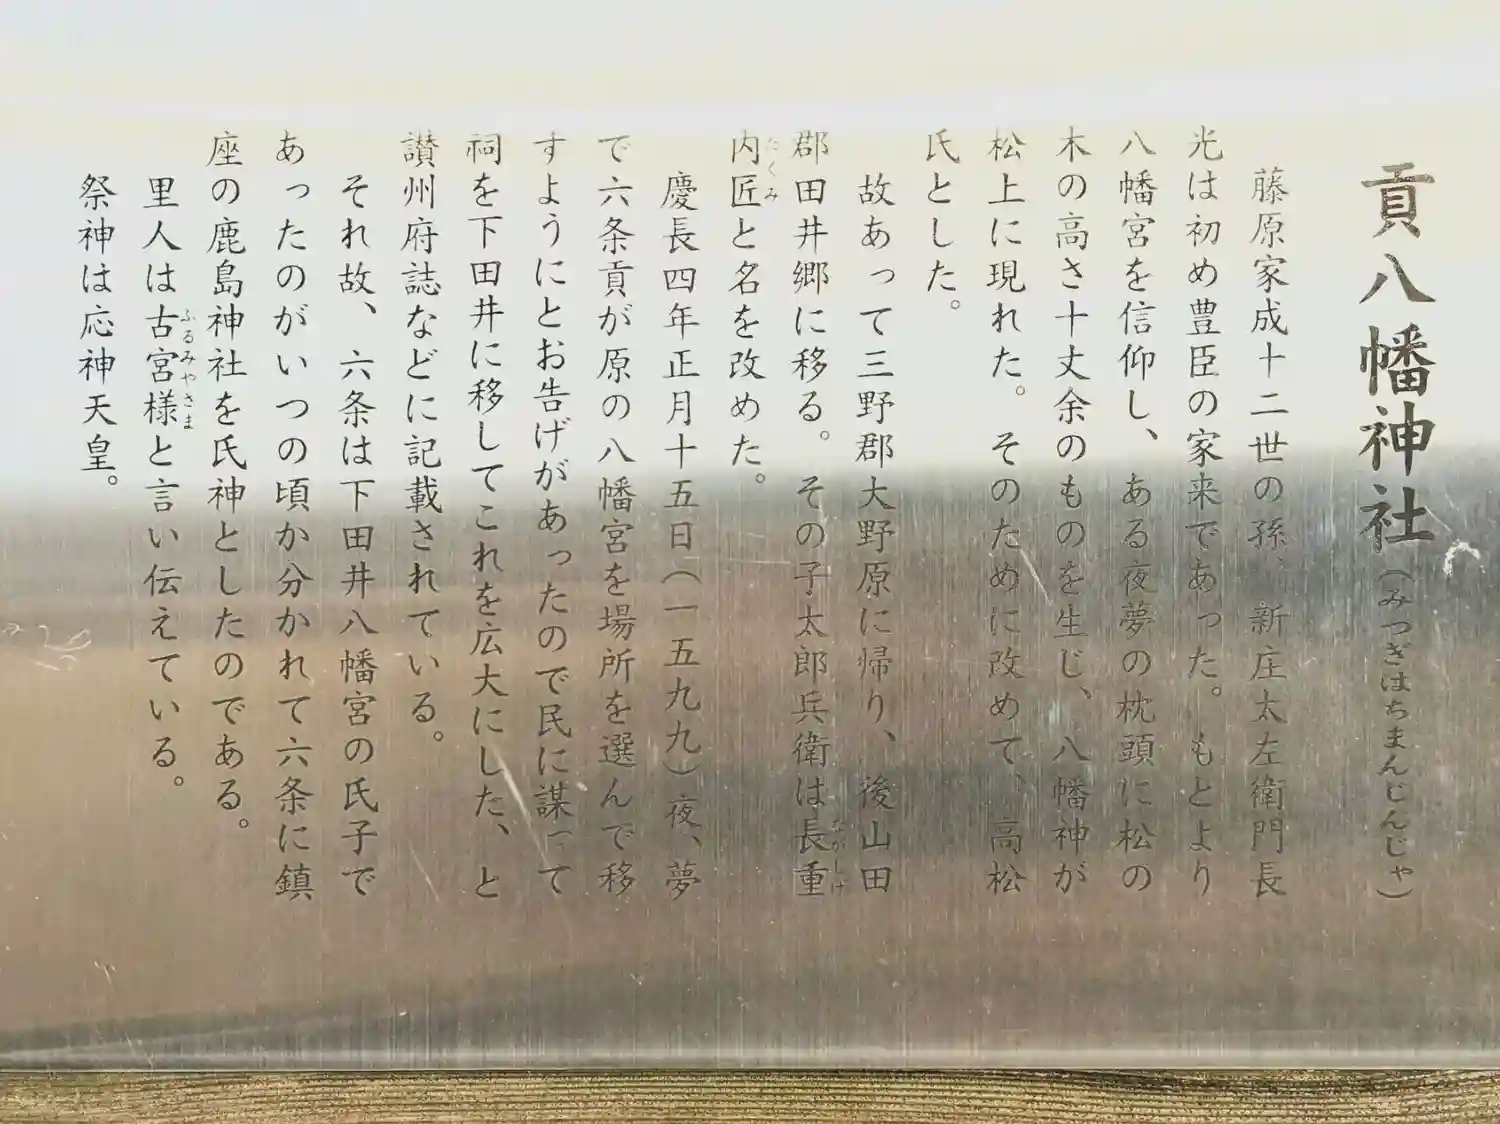 貢八幡神社(みつぎはちまんじんじゃ)
藤原家成十二世の孫、新庄太左衛門長
光は初め豊臣の家来であった。もとより
八幡宮を信仰し、ある夜夢の枕頭に松の
木の高さ十丈余のものを生じ、八幡神が
松上に現れた。そのために改めて、高松
氏とした。
故あって三野郡大野原に帰り、後山田
郡田井郷に移る。その子太郎兵衛は長重
ながしげ
内匠と名を改めた。
たくみ
慶長四年正月十五日(一五九九)夜、夢
で六条貢が原の八幡宮を場所を選んで移
すようにとお告げがあったので民に謀って
祠を下田井に移してこれを広大にした、と
讃州府誌などに記載されている。
それ故、六条は下田井八幡宮の氏子で
あったのがいつの頃か分かれて六条に鎮
座の鹿島神社を氏神としたのである。
里人は古宮様と言い伝えている。
ふるみやさま
祭神は応神天皇。